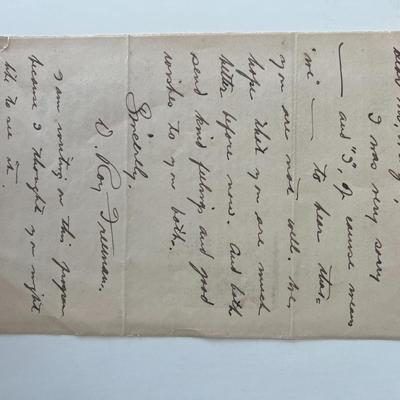 I was very sorry
— and "I", of course means
"we" — to hear that
you are not well. We
hope that you are much
better before now. And both
send kind feelings and good
wishes to you both.
Sincerely,
O. Roy Freeman.
I am writing on this program
because I thought you might
like to see it.